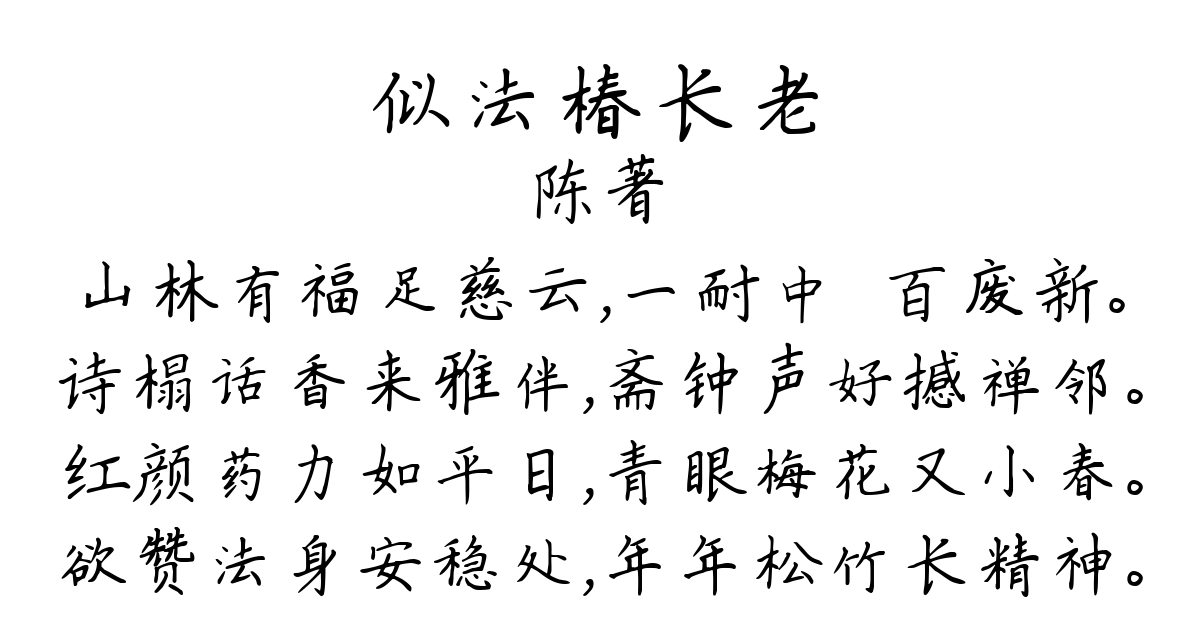 似法椿长老
陈著
山林有福足慈云,一耐中 百废新。
诗榻话香来雅伴,斋钟声好撼禅邻。
红颜药力如平日,青眼梅花又小春。
欲赞法身安稳处,年年松竹长精神。